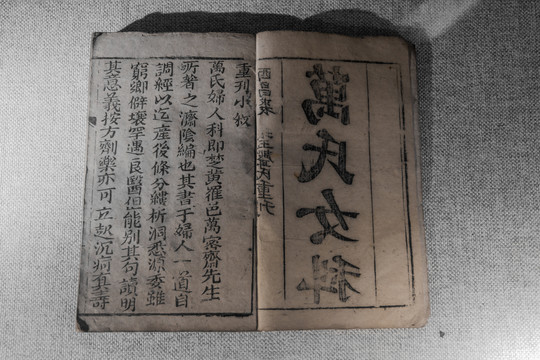 萬氏女科
西昌裘
氏重刊
重刊小叙
萬氏婦人科即楚黃羅邑萬密齋先生
所著之濟陰編也其書于婦人一道自
調經以迄產後條分縷析洞悉源委雖
窮鄉僻壤罕遇良醫但能別其句讀明
其意義按方劑藥亦可立起沉疴真壽